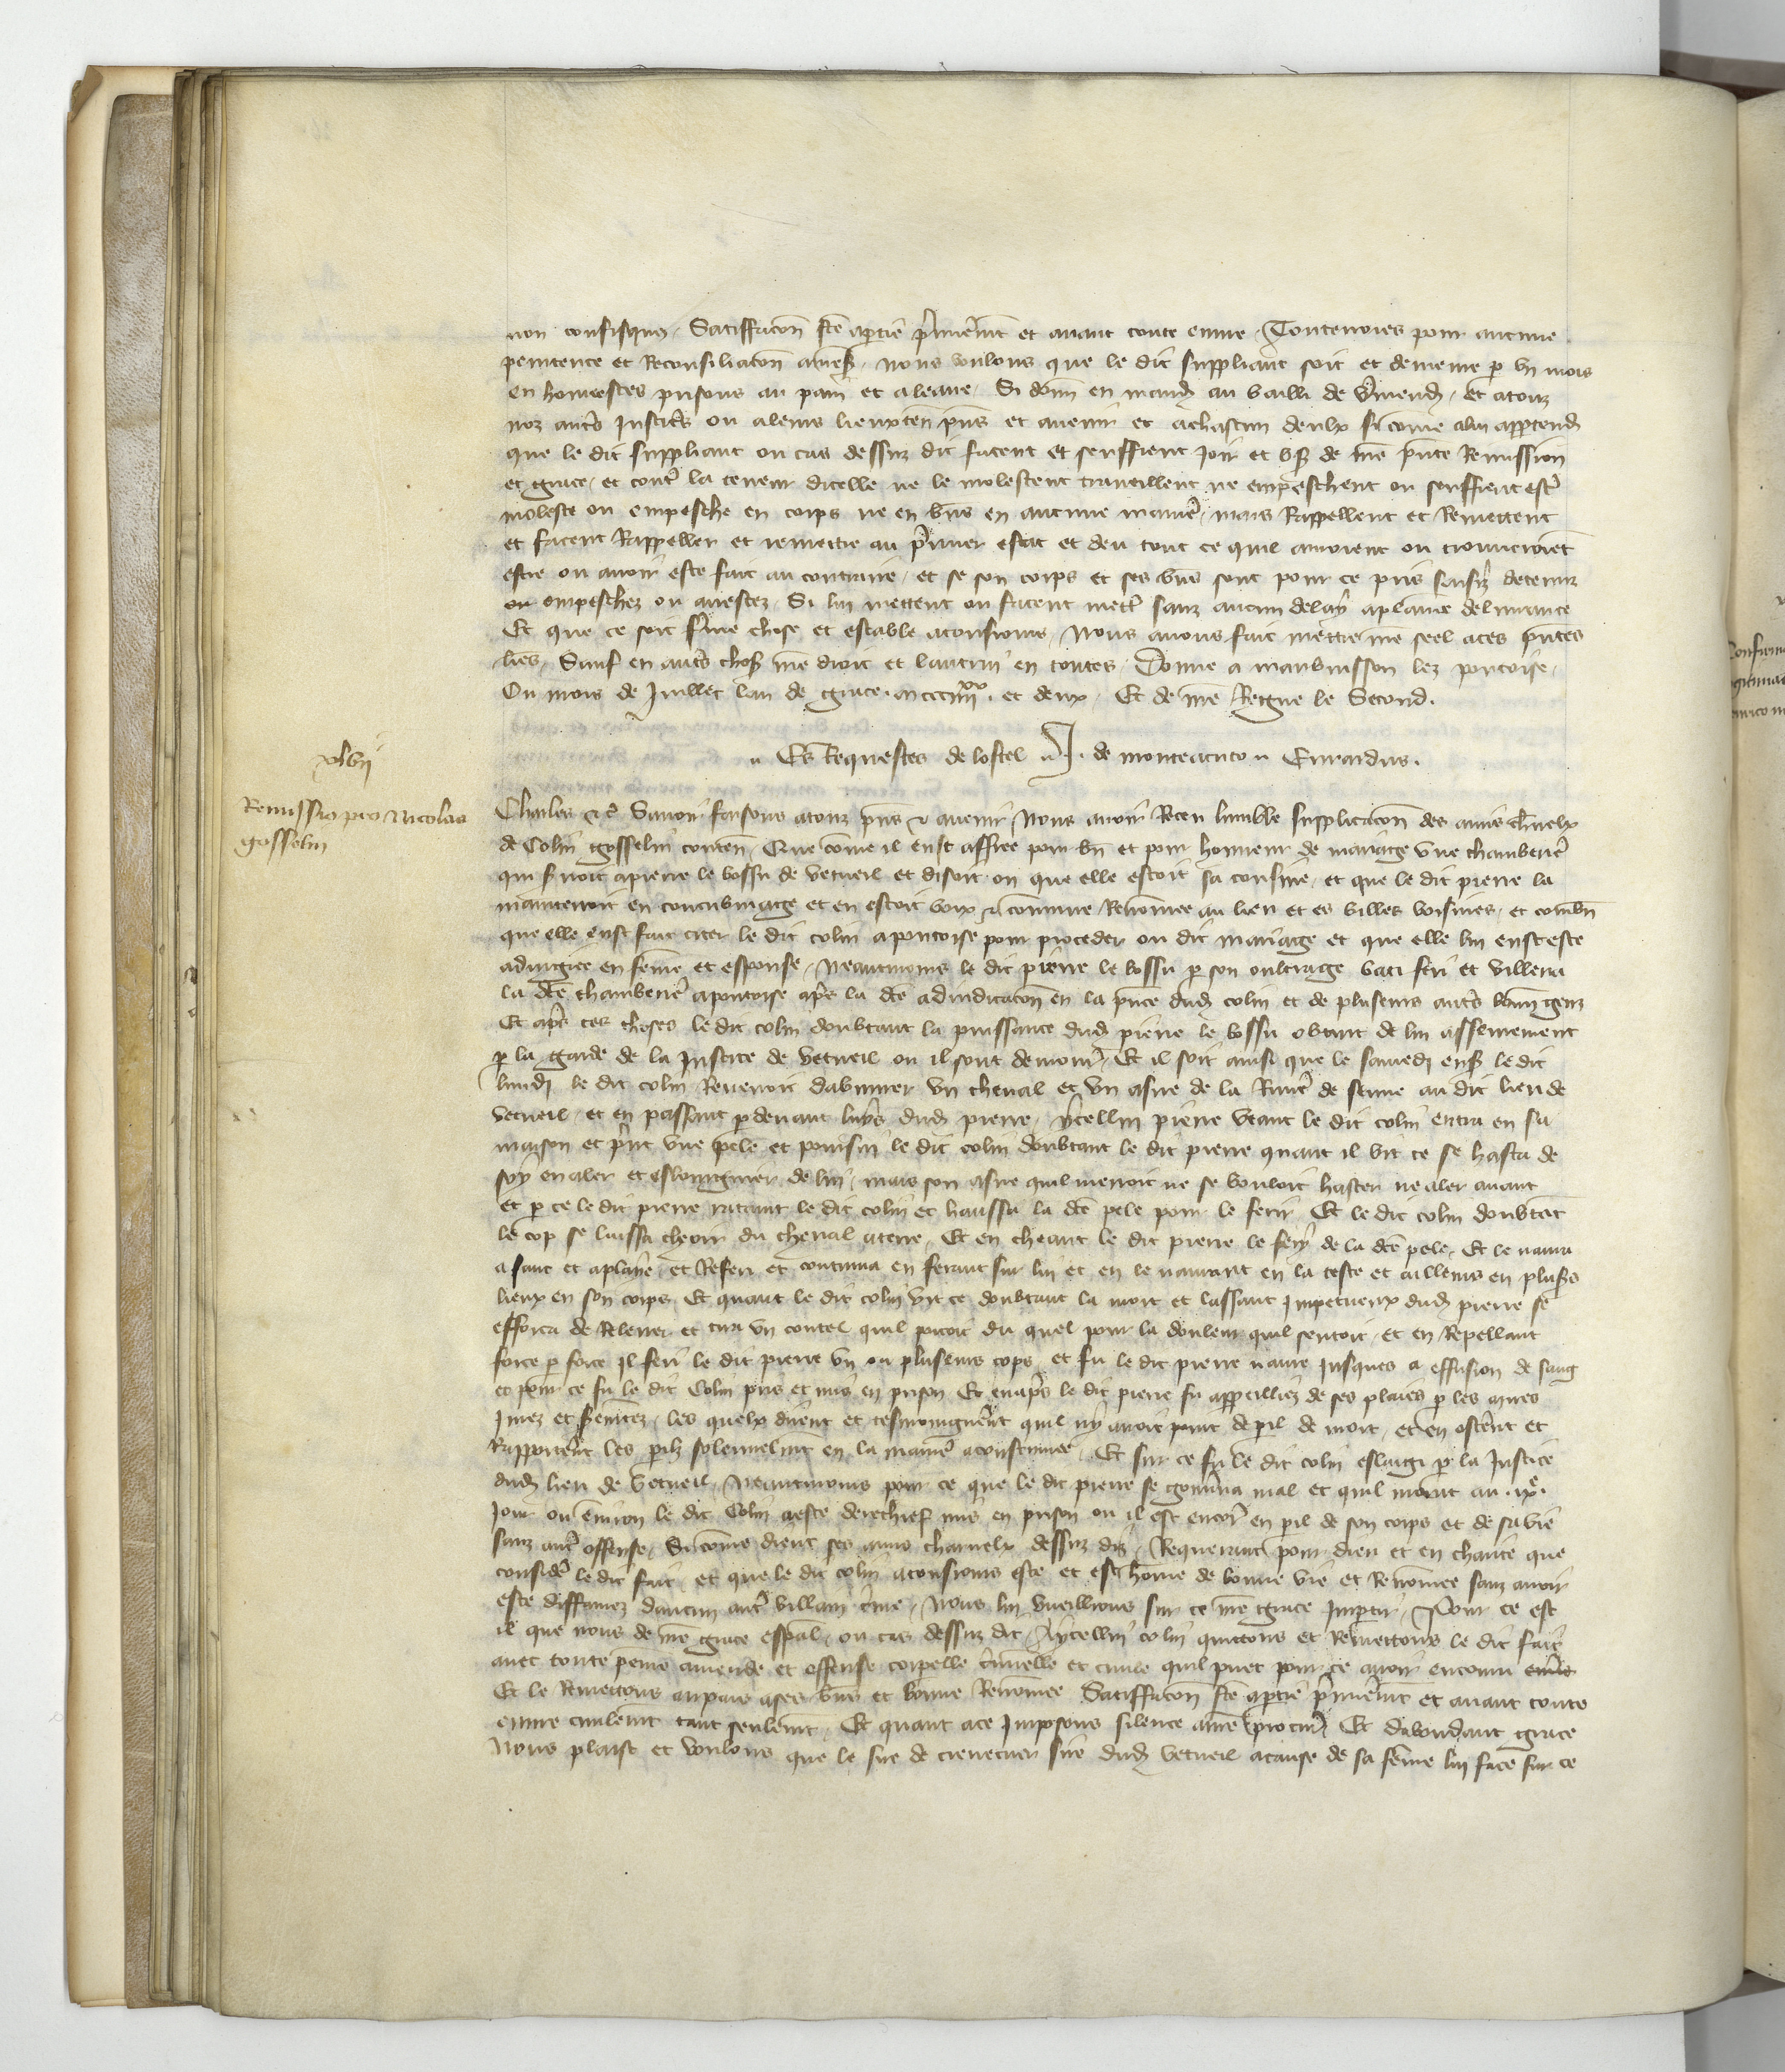 non confisquez. Satiffacōn fcē a ptie p̄mierem̄t et avant toute euvre. Toutevoies pour aucune
penitence et Reconsiliacōn Nous voulons que le dit suppliant soit et demeure p un mois
en honnestes prisons au pain et a leaue. Si donn en mand au bailli de Vermend. et a touz
noz autrs Justicrs ou a leurs lieuxten p̄ns et avenir et a chascun deulx si come a lui apptend
que le dit suppliant ou cas dessuz dit facent et seuffrent Joir et us de nr̄e p̄nte Remission
et grace. et contr la teneur dicelle ne le molestent traveillent ne empeschent ou seuffrent estr
moleste ou empesche en corps ne en biens en aucune manier. mais Rappellent et Remettent
et facent Rappeller et remettre au p̄mier estat et deu tout ce quil auroient ou trouveroiet
estre ou avoir este fait au contraire. et se son corps et ses biens sont pour ce pris saisiz detenuz
ou empeschez ou arrestez. Si lui mettent ou facent mettr sanz aucun delay a plaine delivrance
Et que ce soit ferme chose et estable a tousjours. Nous avons fait mettre nr̄e seel a ces p̄ntes
lr̄es. Sauf en autrs chos nr̄e droit et lautrui en toutes. Donne a maubuisson lez pontoise.
Ou mois de Juillet lan de grace. m ccc iiii xx. et deux. Et de nr̄e Regne le Second.
Es Requestes de lostel J. de monteacuto Evrardus.
xlvii
Remissio pro Nicolao
gosselin
Charles &c. Savoir faisons a touz p̄ns & avenir Nous avoir Receu lumble supplicacōn des amis charnelx
de Colin gosselin conten. Que come il eust affiee pour bn et pour honneur de mariage une chamberier
qui servoit a pierre le bossu de vetueil et disoit on que elle estoit sa cousine. et que le dit pierre la
maintenoit en concubinage et en estoit voix & commune Renommee au lieu et es villes voisines. et combn
que elle eust fait citer le dit colin a pontoise pour proceder ou dit mariage et que elle lui eust este
adjugiee en feme et espouse. Neantmoins le dit pierre le bossu p son oultrage bati feri et villena
la dcē chamberier a pontoise apr̄s la dcē adjudicacōn en la p̄nce dud colin et de plusieurs autrs bonn genz
Et apr̄s ces choses le dit colin doubtant la puissance dud pierre le bossu obtint de lui assseurement
p la garde de la Justice de vetueil ou il sont demour. Et il soit ainsi que le samedi ens le dit
lundi le dit colin Revenoit dabuvrer un cheval et un asne de la Rivier de seine au dit lieu de
vetueil. et en passant p devant luys dud pierre. ycellui pierre veant le dit colin entra en sa
maison et print une pele et poursui le dit colin doubtant le dit pierre quant il vit ce se hasta de
soy en aler et eslongnier de lui. mais son asne quil menoit ne se vouloit haster ne aler avant
et p ce le dit pierre rataint le dit colin et haussa la dcē pele pour le ferir. Et le dit colin doubtat
le cop se laissa cheoir du cheval a terre. Et en cheant le dit pierre le fery de la dcē pele. Et le navra
a sanc et a plaie. et Referi et continua en ferant sur lui et en le navrant en la teste et ailleurs en plusrs
lieux en son corps. Et quant le dit colin vit ce doubtant la mort et lassaut Impetueux dud pierre se
efforca de Relever et tira un coutel quil portoit du quel pour la douleur quil sentoit. et en Repellant
force p force Il feri le dit pierre un ou plusieurs cops. et fu le dit pierre navre Jusques a effusion de sang
et pour ce fu le dit Colin pris et mis en prison Et enaprs le dit pierre fu appeilliez de ses plaies p les mires
Jurez et sermentez. les quelx dirent et tesmoingnerent quil ny avoit point de pil de mort. et en osterent et
Rapporterent les pilz solennelmt en la manier acoustumee. Et sur ce fu le dit colin eslargi p la Justice
dud lieu de vetueil. Neantmoins pour ce que le dit pierre se gouverna mal et quil morut au. ix.e
Jour ou environ le dit Colin a este derechief mis en prison ou il est encor en pil de son corps et de sa vie
sanz autr offense. Si come dient ses amis charnelx dessuz diz. Requerans pour dieu et en charite que
consider le dit fait. et que le dit colin a tousjours este et est home de bonne vie et Renomee sanz avoir
este diffamez daucun autr villain crime. Nous lui vueillions sur ce nr̄e grace Impartir. Pour ce est
il que nous de nr̄e grace esp̄al. ou cas dessuz dit. A ycellui colin quittons et Remettons le dit fait
avec toute peine amende et offense corpelle criminelle et civile quil puet pour ce avoir encouru
Et le Remettons au pais a ses biens et bonne Renomee Satiffacōn fcē a ptie p̄mierem̄t et avant toute
euvre civilemt tant seulemt. Et quant a ce Imposons silence a nr̄e procur Et dabondant grace
Nous plaist et voulons que le sire de sire dud vetueil a cause de sa feme lui face sur ce